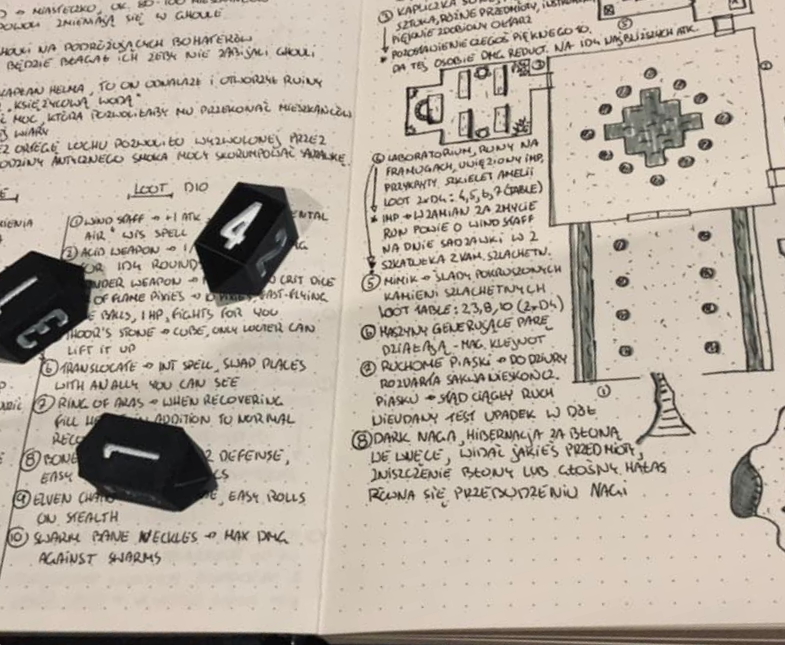 MIASTECZKO, OK. 80-100
ZMIENIAJĄ SIĘ W GHOULE
NA PODRÓŻUJĄCYCH BOHATERÓW
BĘDZIE BŁAGAŁ ICH ŻEBY NIE ZABIJALI GHOULI
KAPŁAN HELMA, TO ON ODNALAZŁ I OTWORZYŁ RUINY
"KSIĘŻYCOWĄ WODĄ"
MOC, KTÓRA POZWOLIŁABY MU PRZEKONAĆ MIESZKAŃCÓW
WIARY
LOCHU POZWOLIŁO WYZWOLONEJ PRZEZ
ANTYCZNEGO SMOKA MOCY SKORUMPOWAĆ
LOOT D10
① WIND STAFF → +1 ATK
AIR" WIS SPELL
② ACID WEAPON → 1
FOR 1D4 ROUND
WEAPON → CRIT DICE
OF FLAME PIXIES → FAST-FLYING
BALLS, 1HP, FIGHTS FOR YOU
STONE → CUBE, ONLY CAN
LIFT IT UP
⑥ TRANSLOCATE → INT SPELL, SWAP PLACES
WITH AN ALLY YOU CAN SEE
⑦ RING OF → WHEN RECOVERING
FILL IN ADDITION TO NORMAL
⑧ BONE DEFENSE,
EASY
⑨ ELVEN EASY ROLLS
ON STEALTH
⑩ SWARM BANE NECKLES → MAX DMG
AGAINST SWARMS
4
2
1
3
1
③ KAPLICZKA
SZTUKA, RÓŻNE PRZEDMIOTY,
PIĘKNIE ZDOBIONY OŁTARZ
POZOSTAWIENIE CZEGOŚ PIĘKNEGO
DA TEJ OSOBIE DMG REDUCT. NA 1D4 NAJBLIŻSZYCH ATK.
④ LABORATORIUM, RUNY NA
FRAMUGACH, UWIĘZIONY IMP,
PRZYKRYTY SZKIELET AMELII
LOOT 2xD4: 4,5,6,7 (TABLE)
IMP → W ZAMIAN ZA ZMYCIE
RUN POWIE O WIND STAFF
NA DNIE SADZAWKI W 2
SZKATUŁKA Z KAM. SZLACHETN.
⑤ MIMIK → ŚLADY POKRUSZONYCH
KAMIENI SZLACHETNYCH
LOOT TABLE: 2,3,8,10 (2xD4)
⑥ MASZYNY GENERUJĄCE PARĘ
DZIAŁAJĄ - MAG. KLEJNOT
⑦ RUCHOME PIASKI → DO DZIURY
ROZDARTA SAKWA NIESKOŃCZ.
PIASKU → STĄD CIĄGŁY RUCH
NIEUDANY TEST UPADEK W DÓŁ
⑧ DARK NAGA, HIBERNACJA ZA BŁONĄ
WE WNĘCE, WIDAĆ JAKIEŚ PRZEDMIOTY,
ZNISZCZENIE BŁONY LUB GŁOŚNY HAŁAS
RÓWNA SIĘ PRZEBUDZENIU NAGI
①